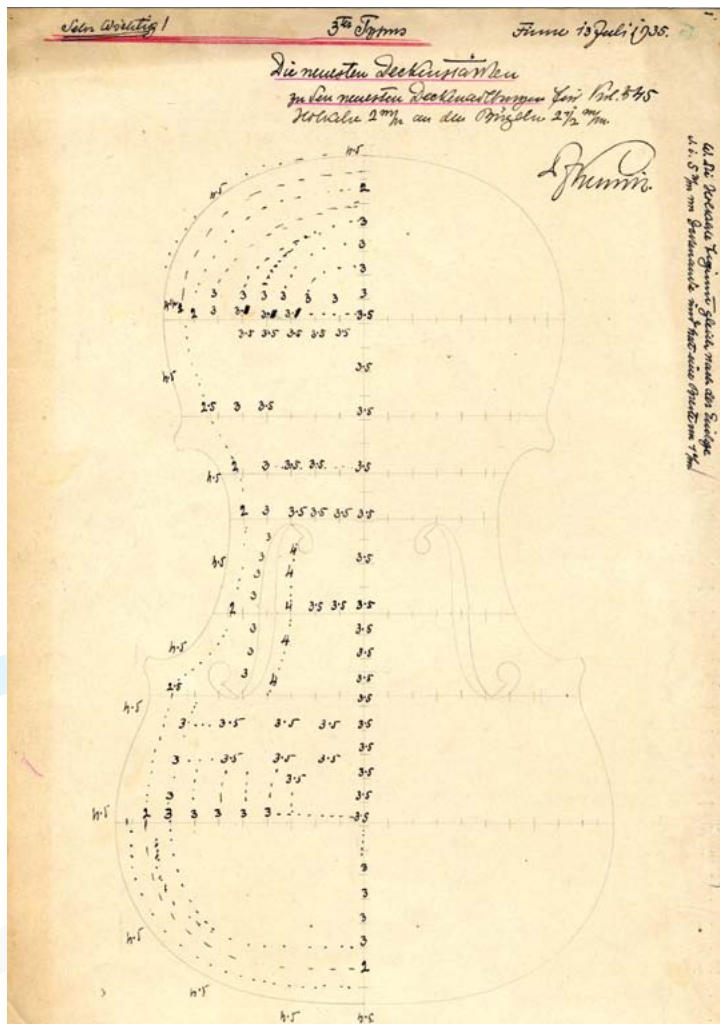 Sehr Wichtig! 3ter Typus Fiume 13 Juli 1935.
Die neuesten Deckenstärken
zu den neuesten Deckenwölbungen für Viol.
Hohlkehle 2 m/m an den Bügeln 2 1/2 m/m.
Die Hohlkehle beginnt gleich nach der Einlage
d.i. 5 m/m vom Deckenrande und hat eine Breite von
4.5
4.5 2
3
3
3
3 3 3 3 3 3 3
4.5 3 2 3 3.5
3.5 3.5 3.5 3.5 3.5
3.5
4.5
2.5 3 3.5 3.5
2 3 3.5 3.5 3.5
4.5
2 3 3.5 3.5 3.5 3.5
3
4.5 3 4 3.5
3 4
3
2 4 3.5 3.5 3.5
3 3.5
4.5 3 4 3.5
2.5 3 4 3.5
4.5 3.5
3 3.5 3.5 3.5 3.5
3.5
3 3.5 3.5 3.5
3.5 3.5
3 3.5
4.5 2 3 3 3 3 3 3.5
3
3
3
4.5 3
2
4.5
4.5 4.5